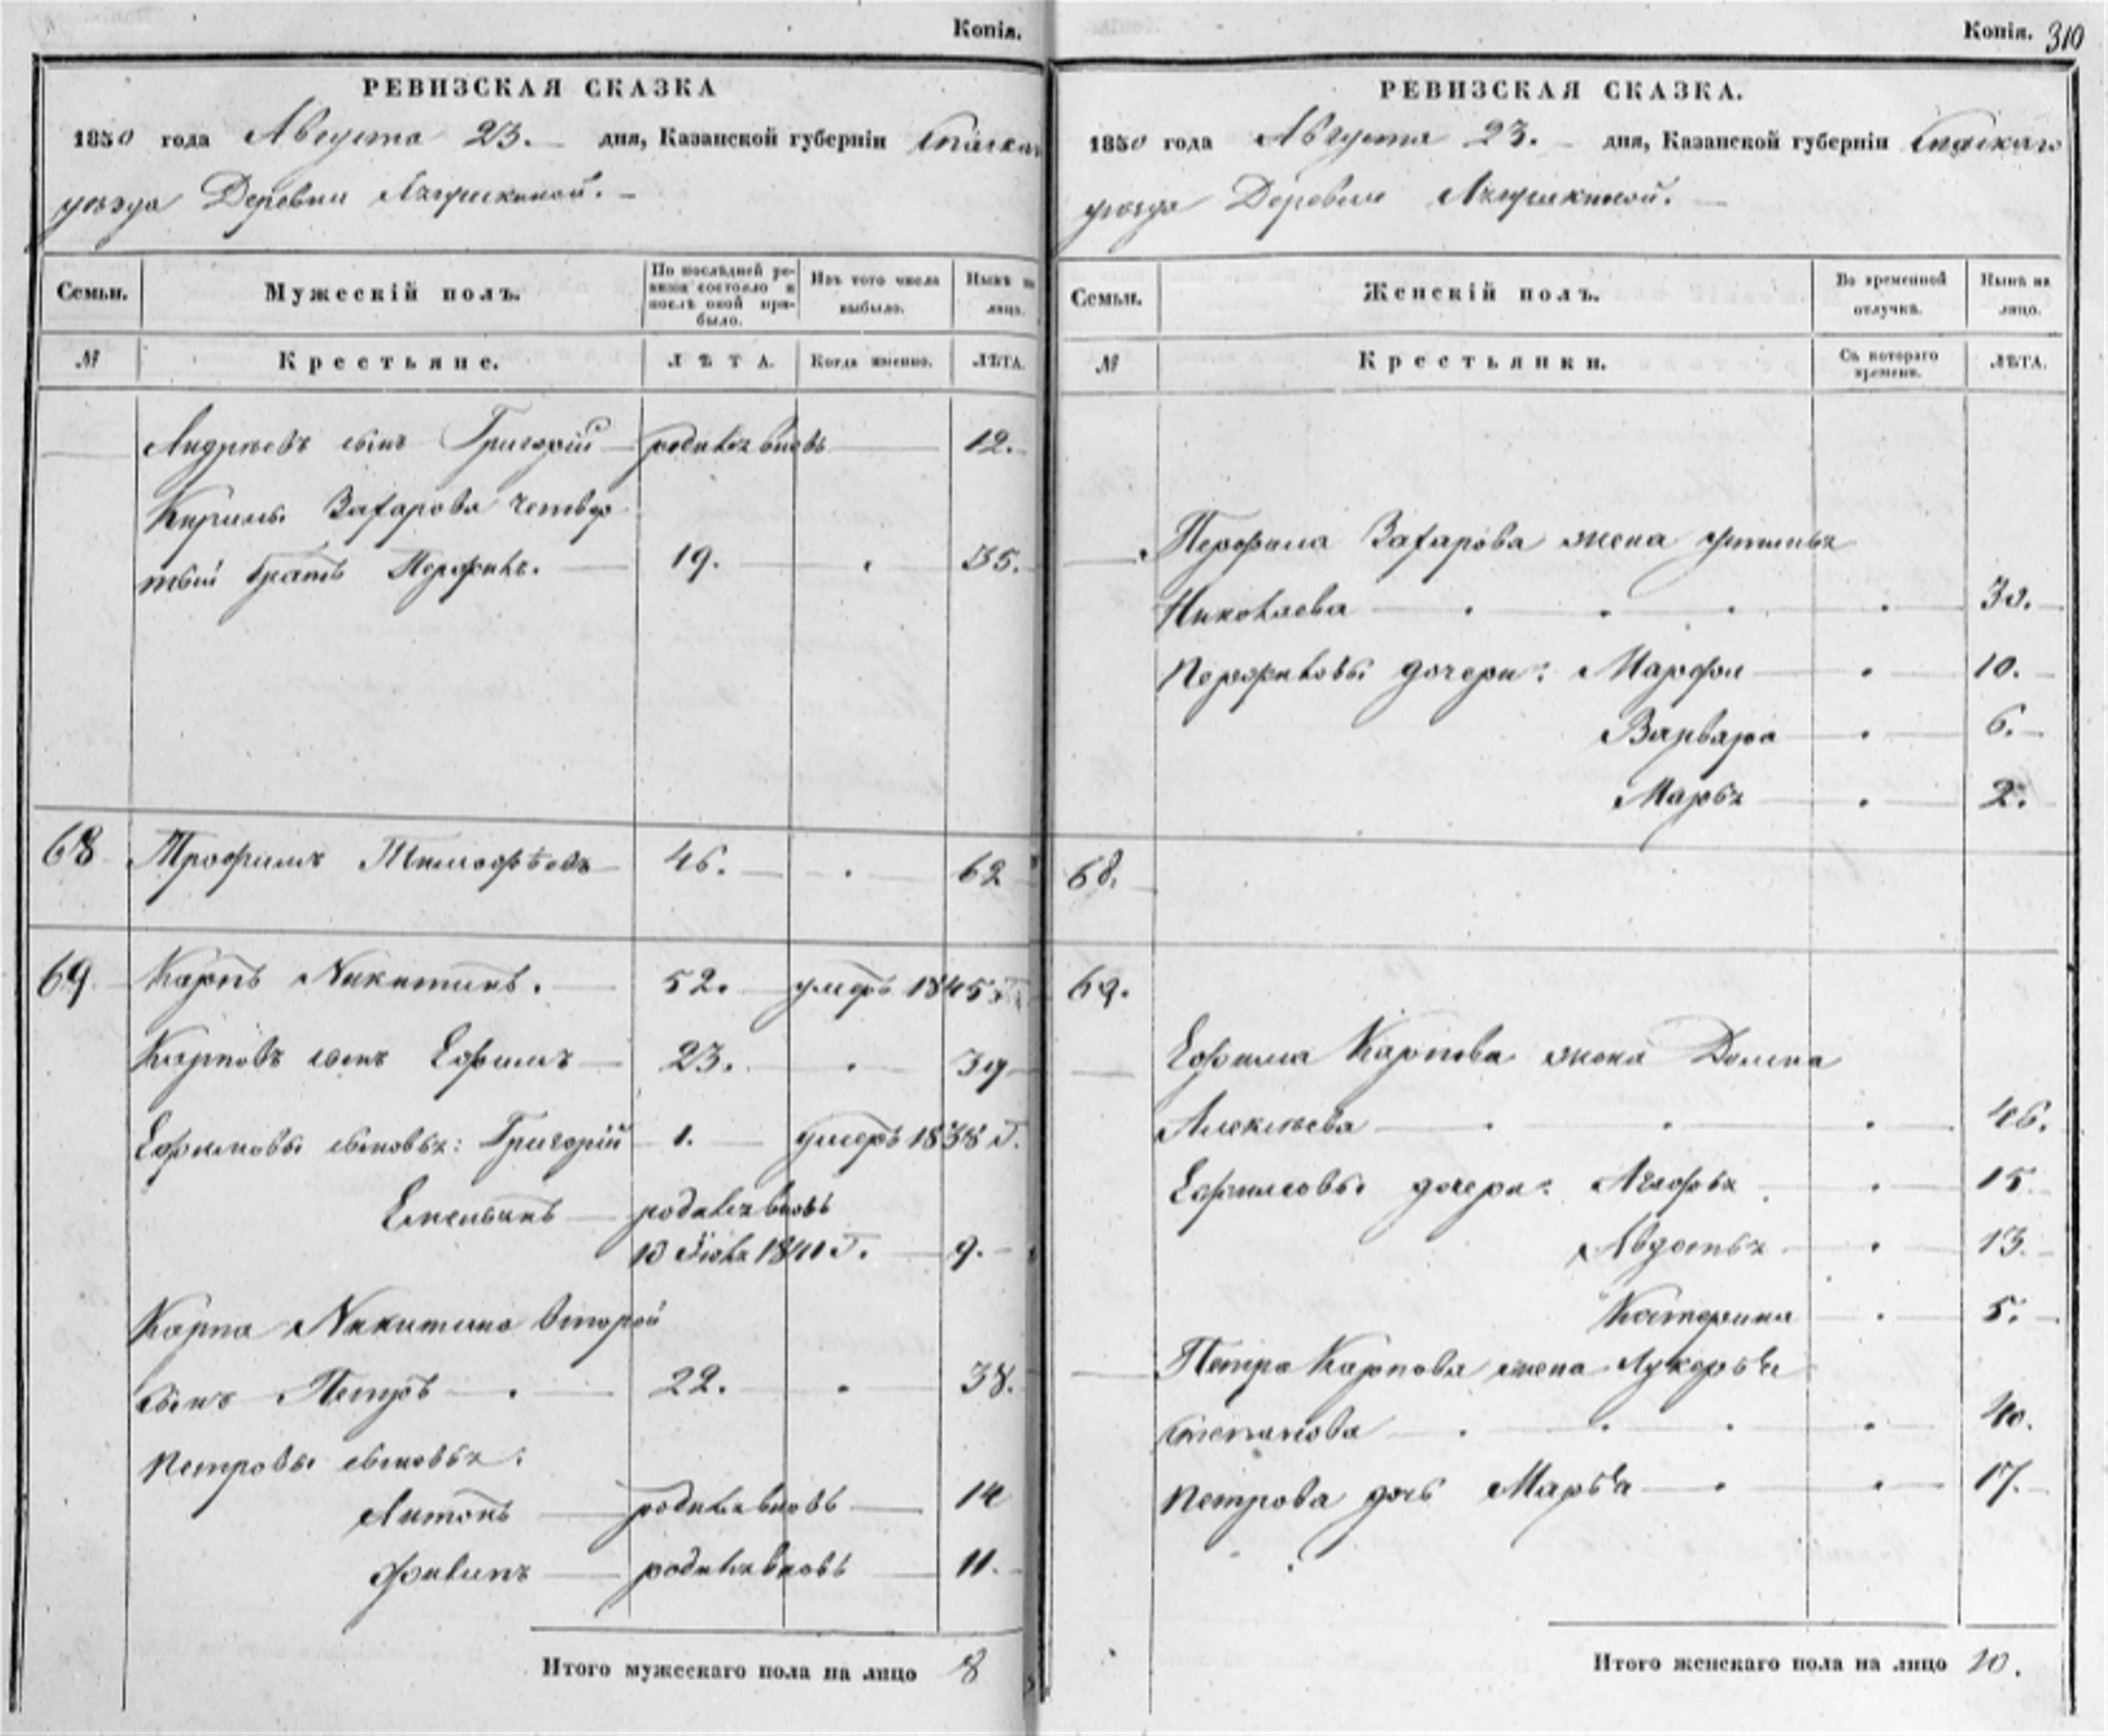 Копія.
РЕВИЗСКАЯ СКАЗКА
1850 года Августа 23. дня, Казанской губерніи Спаскаго
уѣзда Деревни
Семьи.
Мужескій полъ.
По послѣдней ре-
визіи состояло и
послѣ оной при-
было.
Изъ того числа
выбыло.
Нынѣ на
лицо.
№
Крестьяне.
ЛѢТА.
Когда именно.
ЛѢТА.
Андреевъ сынъ Григорій родился вновь 12.
Кирилы Захарова четвер
тый братъ Перфилъ. 19. 35.
68 Трофимъ Тимофѣевъ 46. 62
69 Карпъ Никитинъ. 52. умеръ 1845 г.
Карповъ сынъ Ефимъ 23. 39
Ефимовы сыновья: Григорій 1. умеръ 1838 г.
Емельянъ родился вновь
10 1841 г. 9.
Карпа Никитина второй
сынъ Петръ 22. 38.
Петровы сыновья:
Антонъ родился вновь 14
Филипъ родился вновь 11.
Итого мужескаго пола на лицо 8
Копія. 310
РЕВИЗСКАЯ СКАЗКА.
1850 года Августа 23. дня, Казанской губерніи Спаскаго
уѣзда Деревни
Семьи.
Женскій полъ.
Во временной
отлучкѣ.
Нынѣ на
лицо.
№
Крестьянки.
Съ котораго
времени.
ЛѢТА.
Перфила Захарова жена Фетинья
Николаева 30.
Перфиловы дочери: Марфа 10.
Варвара 6.
Марья 2.
68.
69.
Ефима Карпова жена Домна
Алексѣева 46.
Ефимовы дочери: 15
Авдотья 13.
Катерина 5.
Петра Карпова жена Лукерья
Степанова 40.
Петрова дочь Марья 17.
Итого женскаго пола на лицо 10.